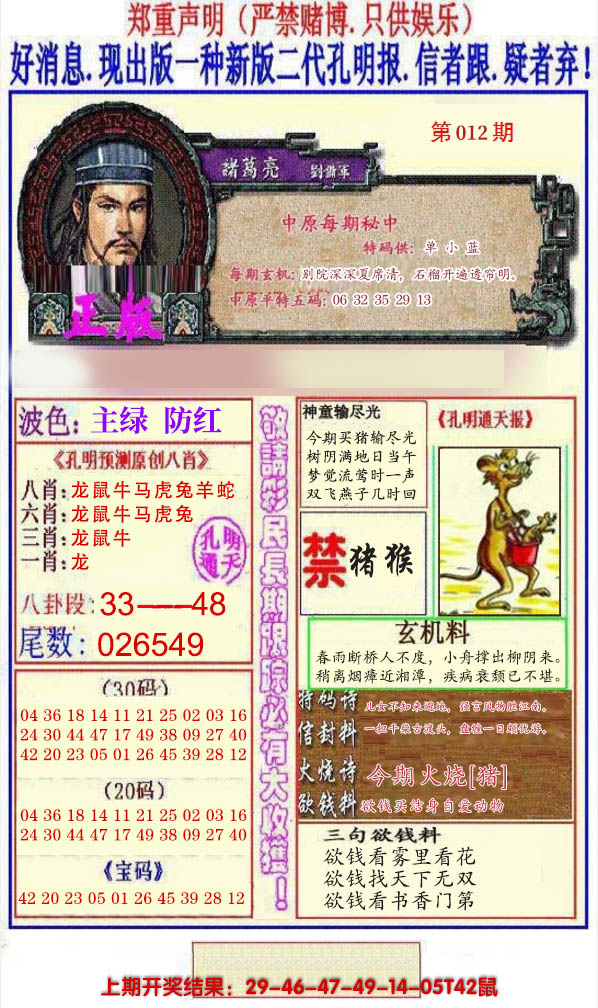 郑重声明（严禁赌博.只供娱乐）
好消息.现出版一种新版二代孔明报.信者跟.疑者弃!
第012期
諸葛亮 劉備軍
中原每期秘中
特码供：单 小 蓝
每期玄机：别院深深夏席清，石榴开遍透帘明。
中原平特五码：06 32 35 29 13
正版
波色：主绿 防红
《孔明预测原创八肖》
八肖：龙鼠牛马虎兔羊蛇
六肖：龙鼠牛马虎兔
三肖：龙鼠牛
一肖：龙
孔明
通天
八卦段：33——48
尾数：026549
（30码）
04 36 18 14 11 21 25 02 03 16
24 30 44 47 17 49 38 09 27 40
42 20 23 05 01 26 45 39 28 12
（20码）
04 36 18 14 11 21 25 02 03 16
24 30 44 47 17 49 38 09 27 40
《宝码》
42 20 23 05 01 26 45 39 28 12
敬請彩民長期跟踪必有大收獲！
神童输尽光
今期买猪输尽光
树阴满地日当午
梦觉流莺时一声
双飞燕子几时回
《孔明通天报》
禁 猪猴
玄机料
春雨断桥人不度，小舟撑出柳阴来。
稍离烟瘴近湘潭，疾病衰颓已不堪。
特码诗
儿女不知来避地，强言风物胜江南。
信封料
火烧诗
今期火烧[猪]
欲钱料
欲钱买洁身自爱动物
三句欲钱料
欲钱看雾里看花
欲钱找天下无双
欲钱看书香门第
上期开奖结果：29-46-47-49-14-05T42鼠